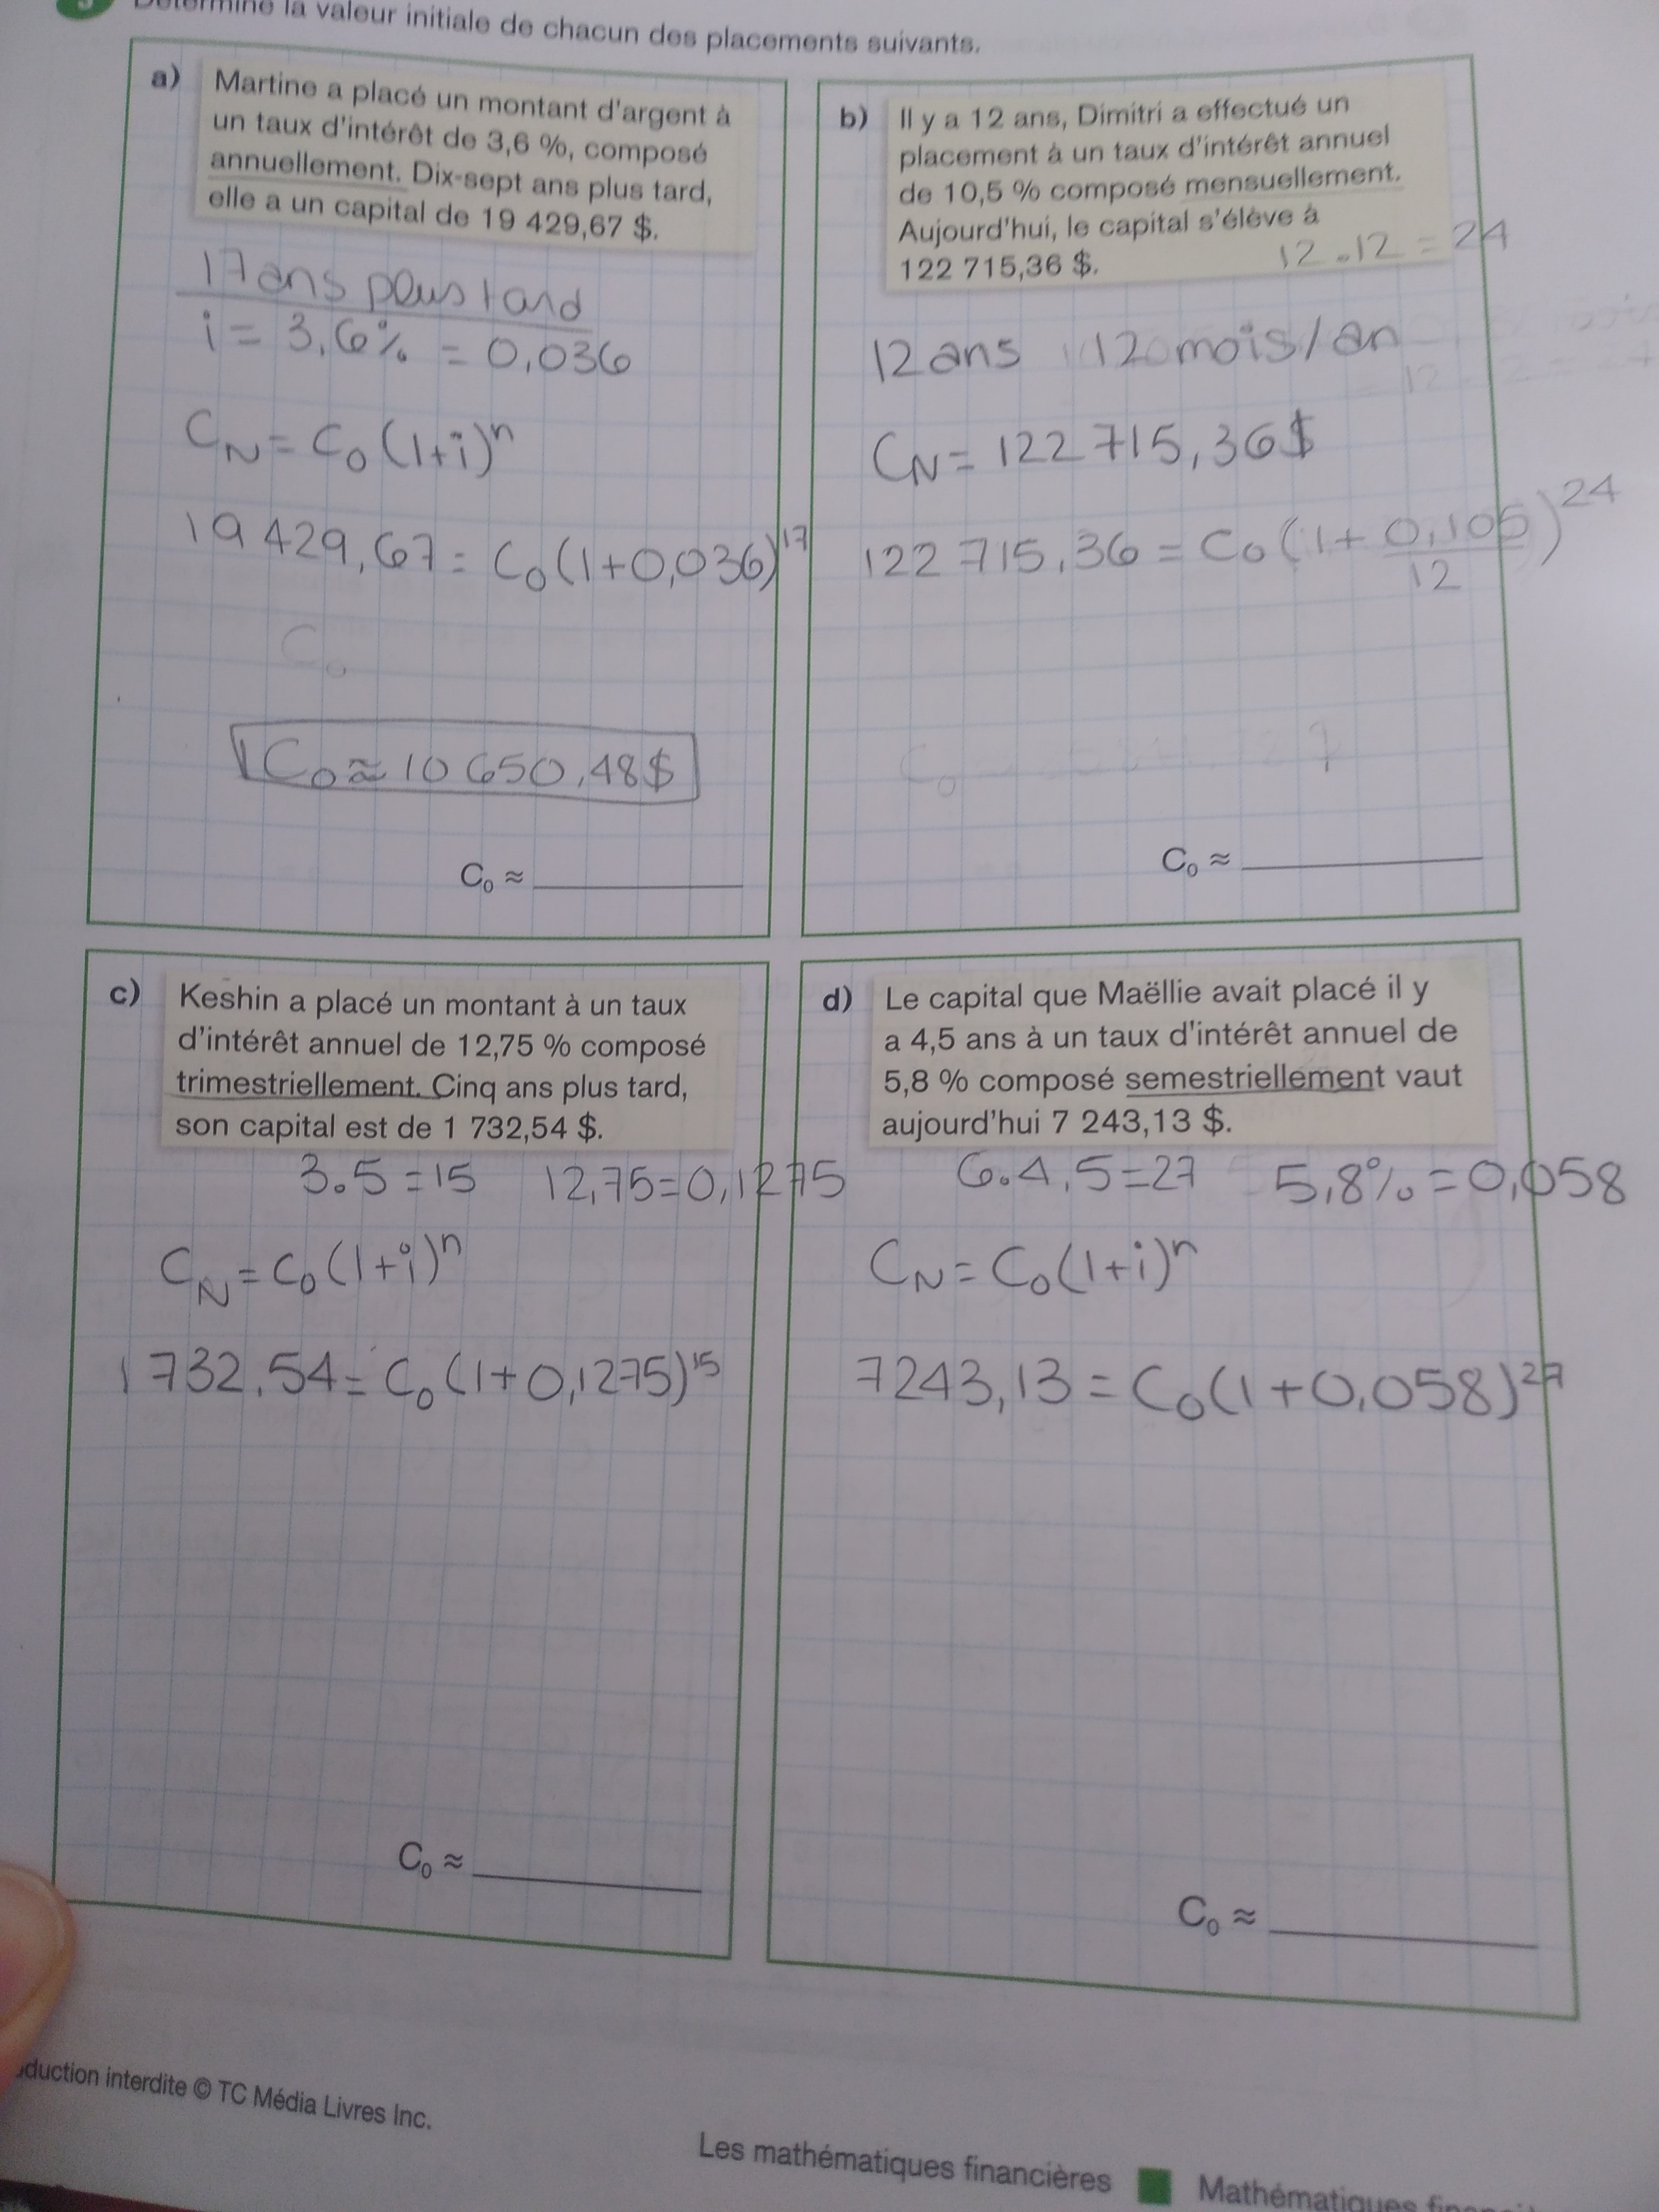 Détermine la valeur initiale de chacun des placements suivants.
a) Martine a placé un montant d'argent à
un taux d'intérêt de 3,6 %, composé
annuellement. Dix-sept ans plus tard,
elle a un capital de 19 429,67 $.
17 ans plus tard
i = 3,6% = 0,036
CN = C0 (1+i)^n
19 429,67 = C0 (1+0,036)^17
C0
C0 ≈ 10 650,48$
C0 ≈
b) Il y a 12 ans, Dimitri a effectué un
placement à un taux d'intérêt annuel
de 10,5 % composé mensuellement.
Aujourd'hui, le capital s'élève à
122 715,36 $.
12 . 12 = 24
12 ans 12 mois/an
CN = 122 715,36$
122 715,36 = C0 (1 + 0,105/12)^24
C0
C0 ≈
c) Keshin a placé un montant à un taux
d'intérêt annuel de 12,75 % composé
trimestriellement. Cinq ans plus tard,
son capital est de 1 732,54 $.
3.5 = 15 12,75 = 0,1275
CN = C0 (1+i)^n
1 732,54 = C0 (1+0,1275)^15
C0 ≈
d) Le capital que Maëllie avait placé il y
a 4,5 ans à un taux d'intérêt annuel de
5,8 % composé semestriellement vaut
aujourd'hui 7 243,13 $.
6.4,5 = 27 5,8% = 0,058
CN = C0 (1+i)^n
7243,13 = C0 (1+0,058)^27
C0 ≈
duction interdite © TC Média Livres Inc.
Les mathématiques financières ■ Mathématiques